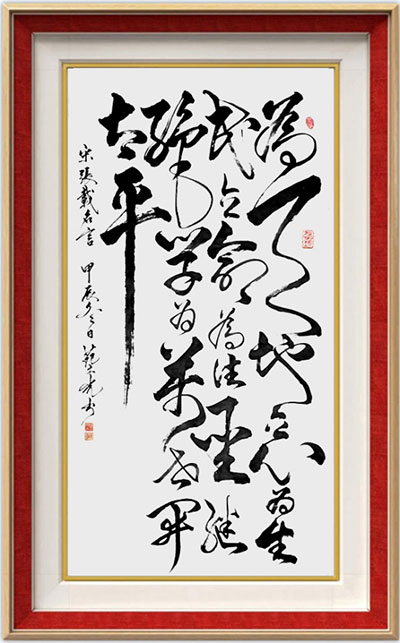 為天地立心为生
民立命為往聖繼
絕学为萬世開
太平
宋張載名言 甲辰冬日